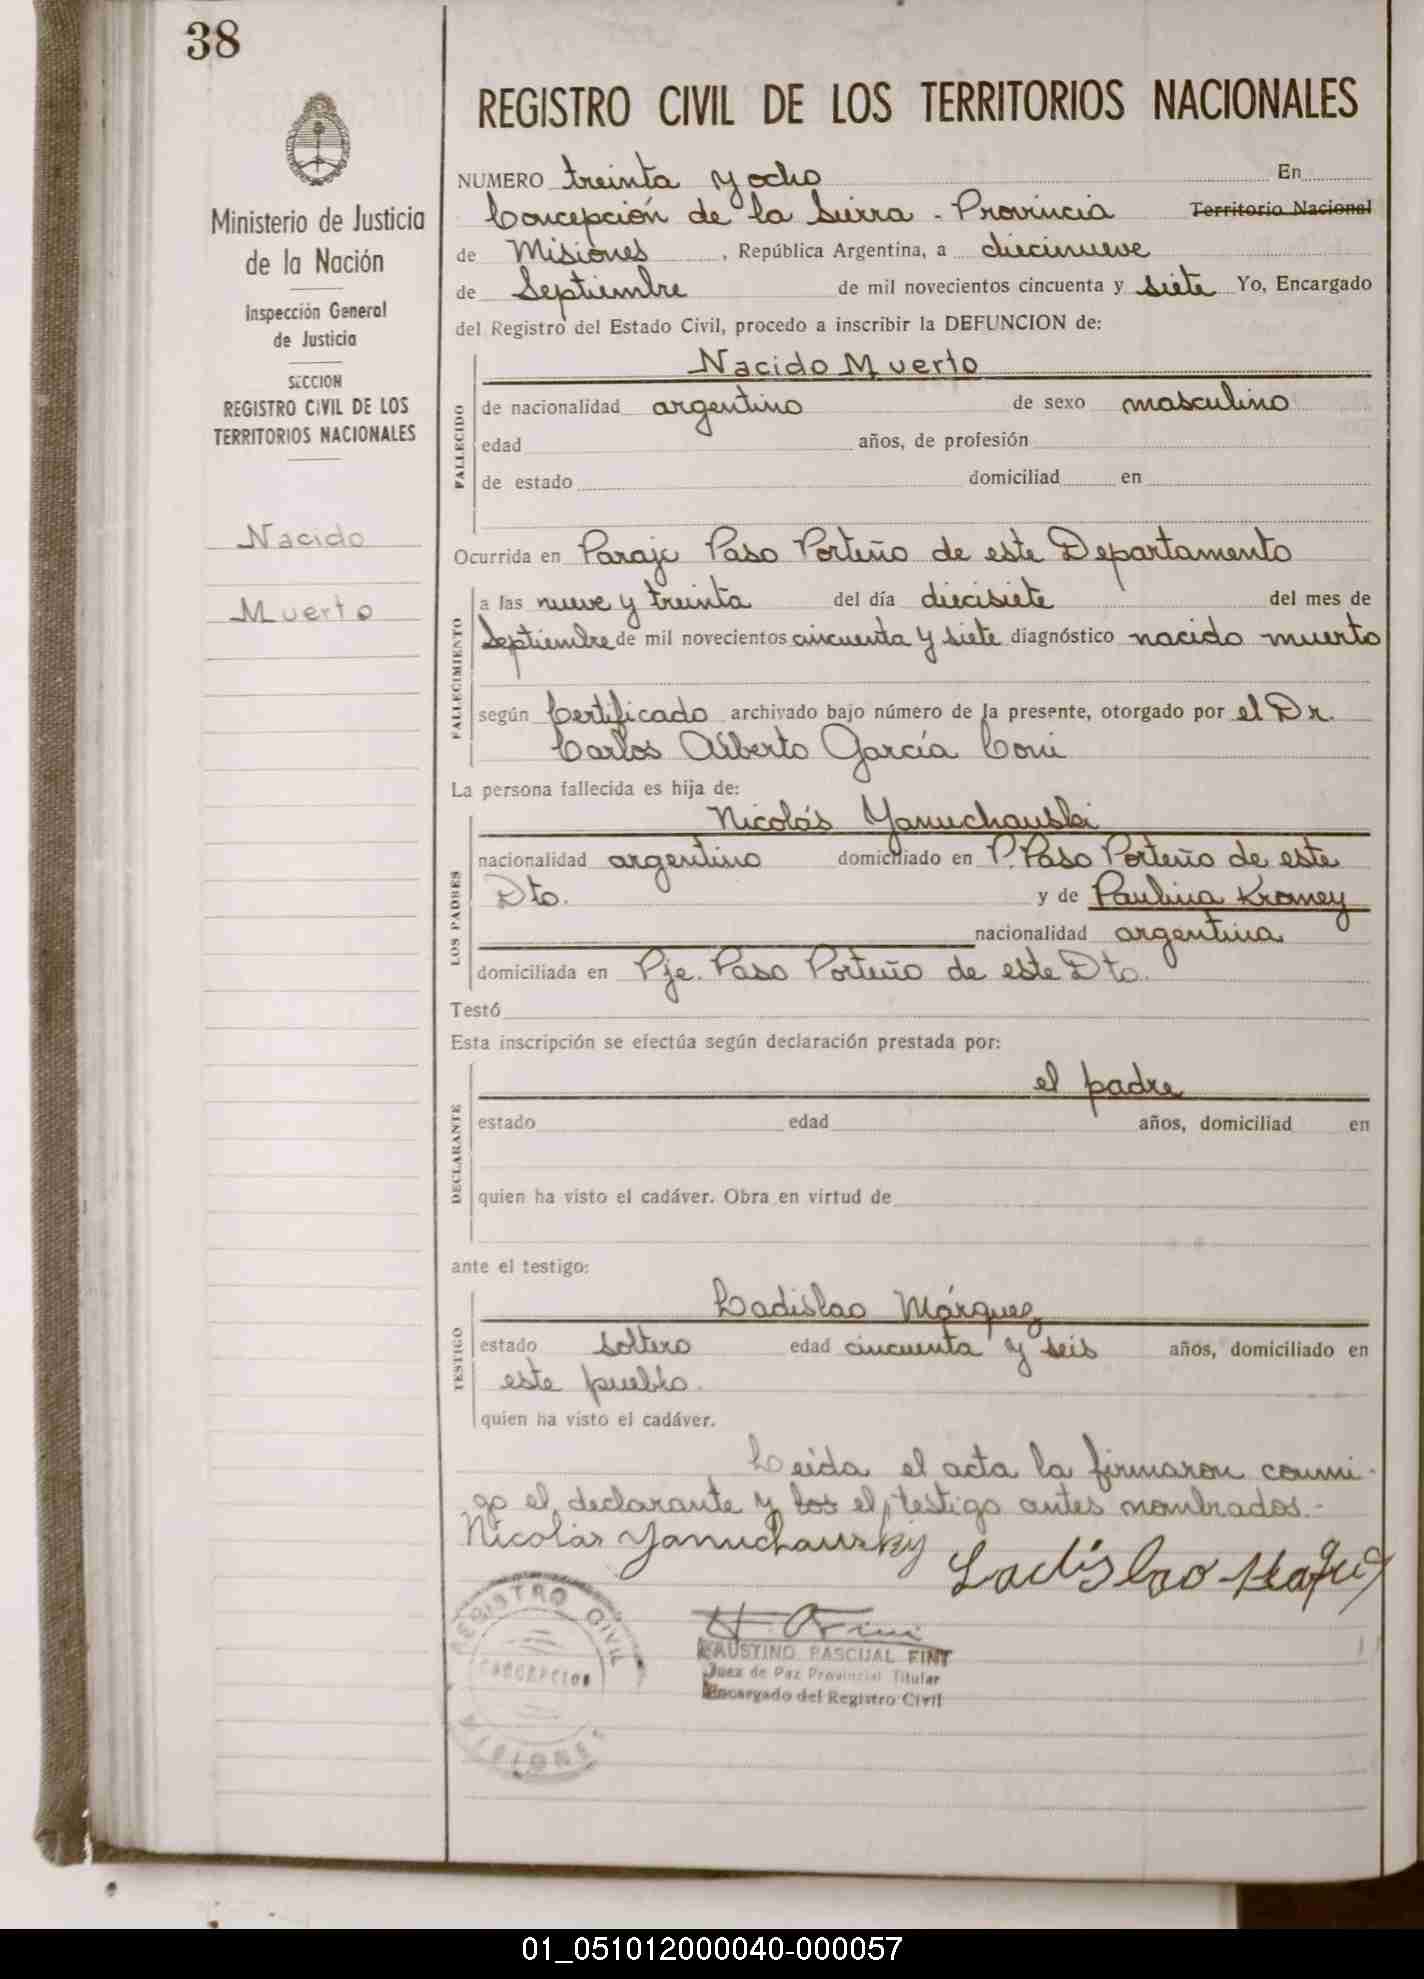 38
REGISTRO CIVIL DE LOS TERRITORIOS NACIONALES
Ministerio de Justicia
de la Nación
Inspección General
de Justicia
SECCION
REGISTRO CIVIL DE LOS
TERRITORIOS NACIONALES
Nacido
Muerto
NUMERO treinta y ocho En
Concepción de la Sierra - Provincia Territorio Nacional
de Misiones, República Argentina, a diecinueve
de Septiembre de mil novecientos cincuenta y siete Yo, Encargado
del Registro del Estado Civil, procedo a inscribir la DEFUNCION de:
Nacido Muerto
FALLECIDO
de nacionalidad argentino de sexo masculino
edad años, de profesión
de estado domiciliad en
Ocurrida en Paraje Paso Porteño de este Departamento
FALLECIMIENTO
a las nueve y treinta del día diecisiete del mes de
Septiembre de mil novecientos cincuenta y siete diagnóstico nacido muerto
según Certificado archivado bajo número de la presente, otorgado por el Dr.
Carlos Alberto García Coni
La persona fallecida es hija de:
Nicolás Yanuchauski
LOS PADRES
nacionalidad argentino domiciliado en P. Paso Porteño de este
Dto. y de Paulina Kramey
nacionalidad argentina
domiciliada en Pje. Paso Porteño de este Dto.
Testó
Esta inscripción se efectúa según declaración prestada por:
el padre
DECLARANTE
estado edad años, domiciliad en
quien ha visto el cadáver. Obra en virtud de
ante el testigo:
Ladislao Márquez
TESTIGO
estado soltero edad cincuenta y seis años, domiciliado en
este pueblo.
quien ha visto el cadáver.
Leida el acta la firmaron conmi-
go el declarante y los el testigo antes nombrados.-
Nicolás Yanuchausky Ladislao
REGISTRO CIVIL
CONCEPCION
MISIONES
FAUSTINO PASCUAL FINI
Juez de Paz Provincial Titular
Encargado del Registro Civil
01_051012000040-000057